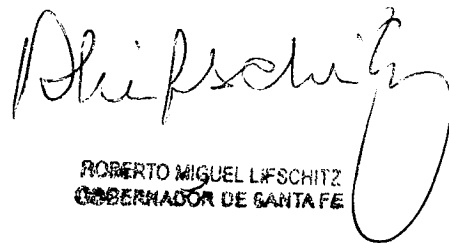 RLifschitz
ROBERTO MIGUEL LIFSCHITZ
GOBERNADOR DE SANTA FE